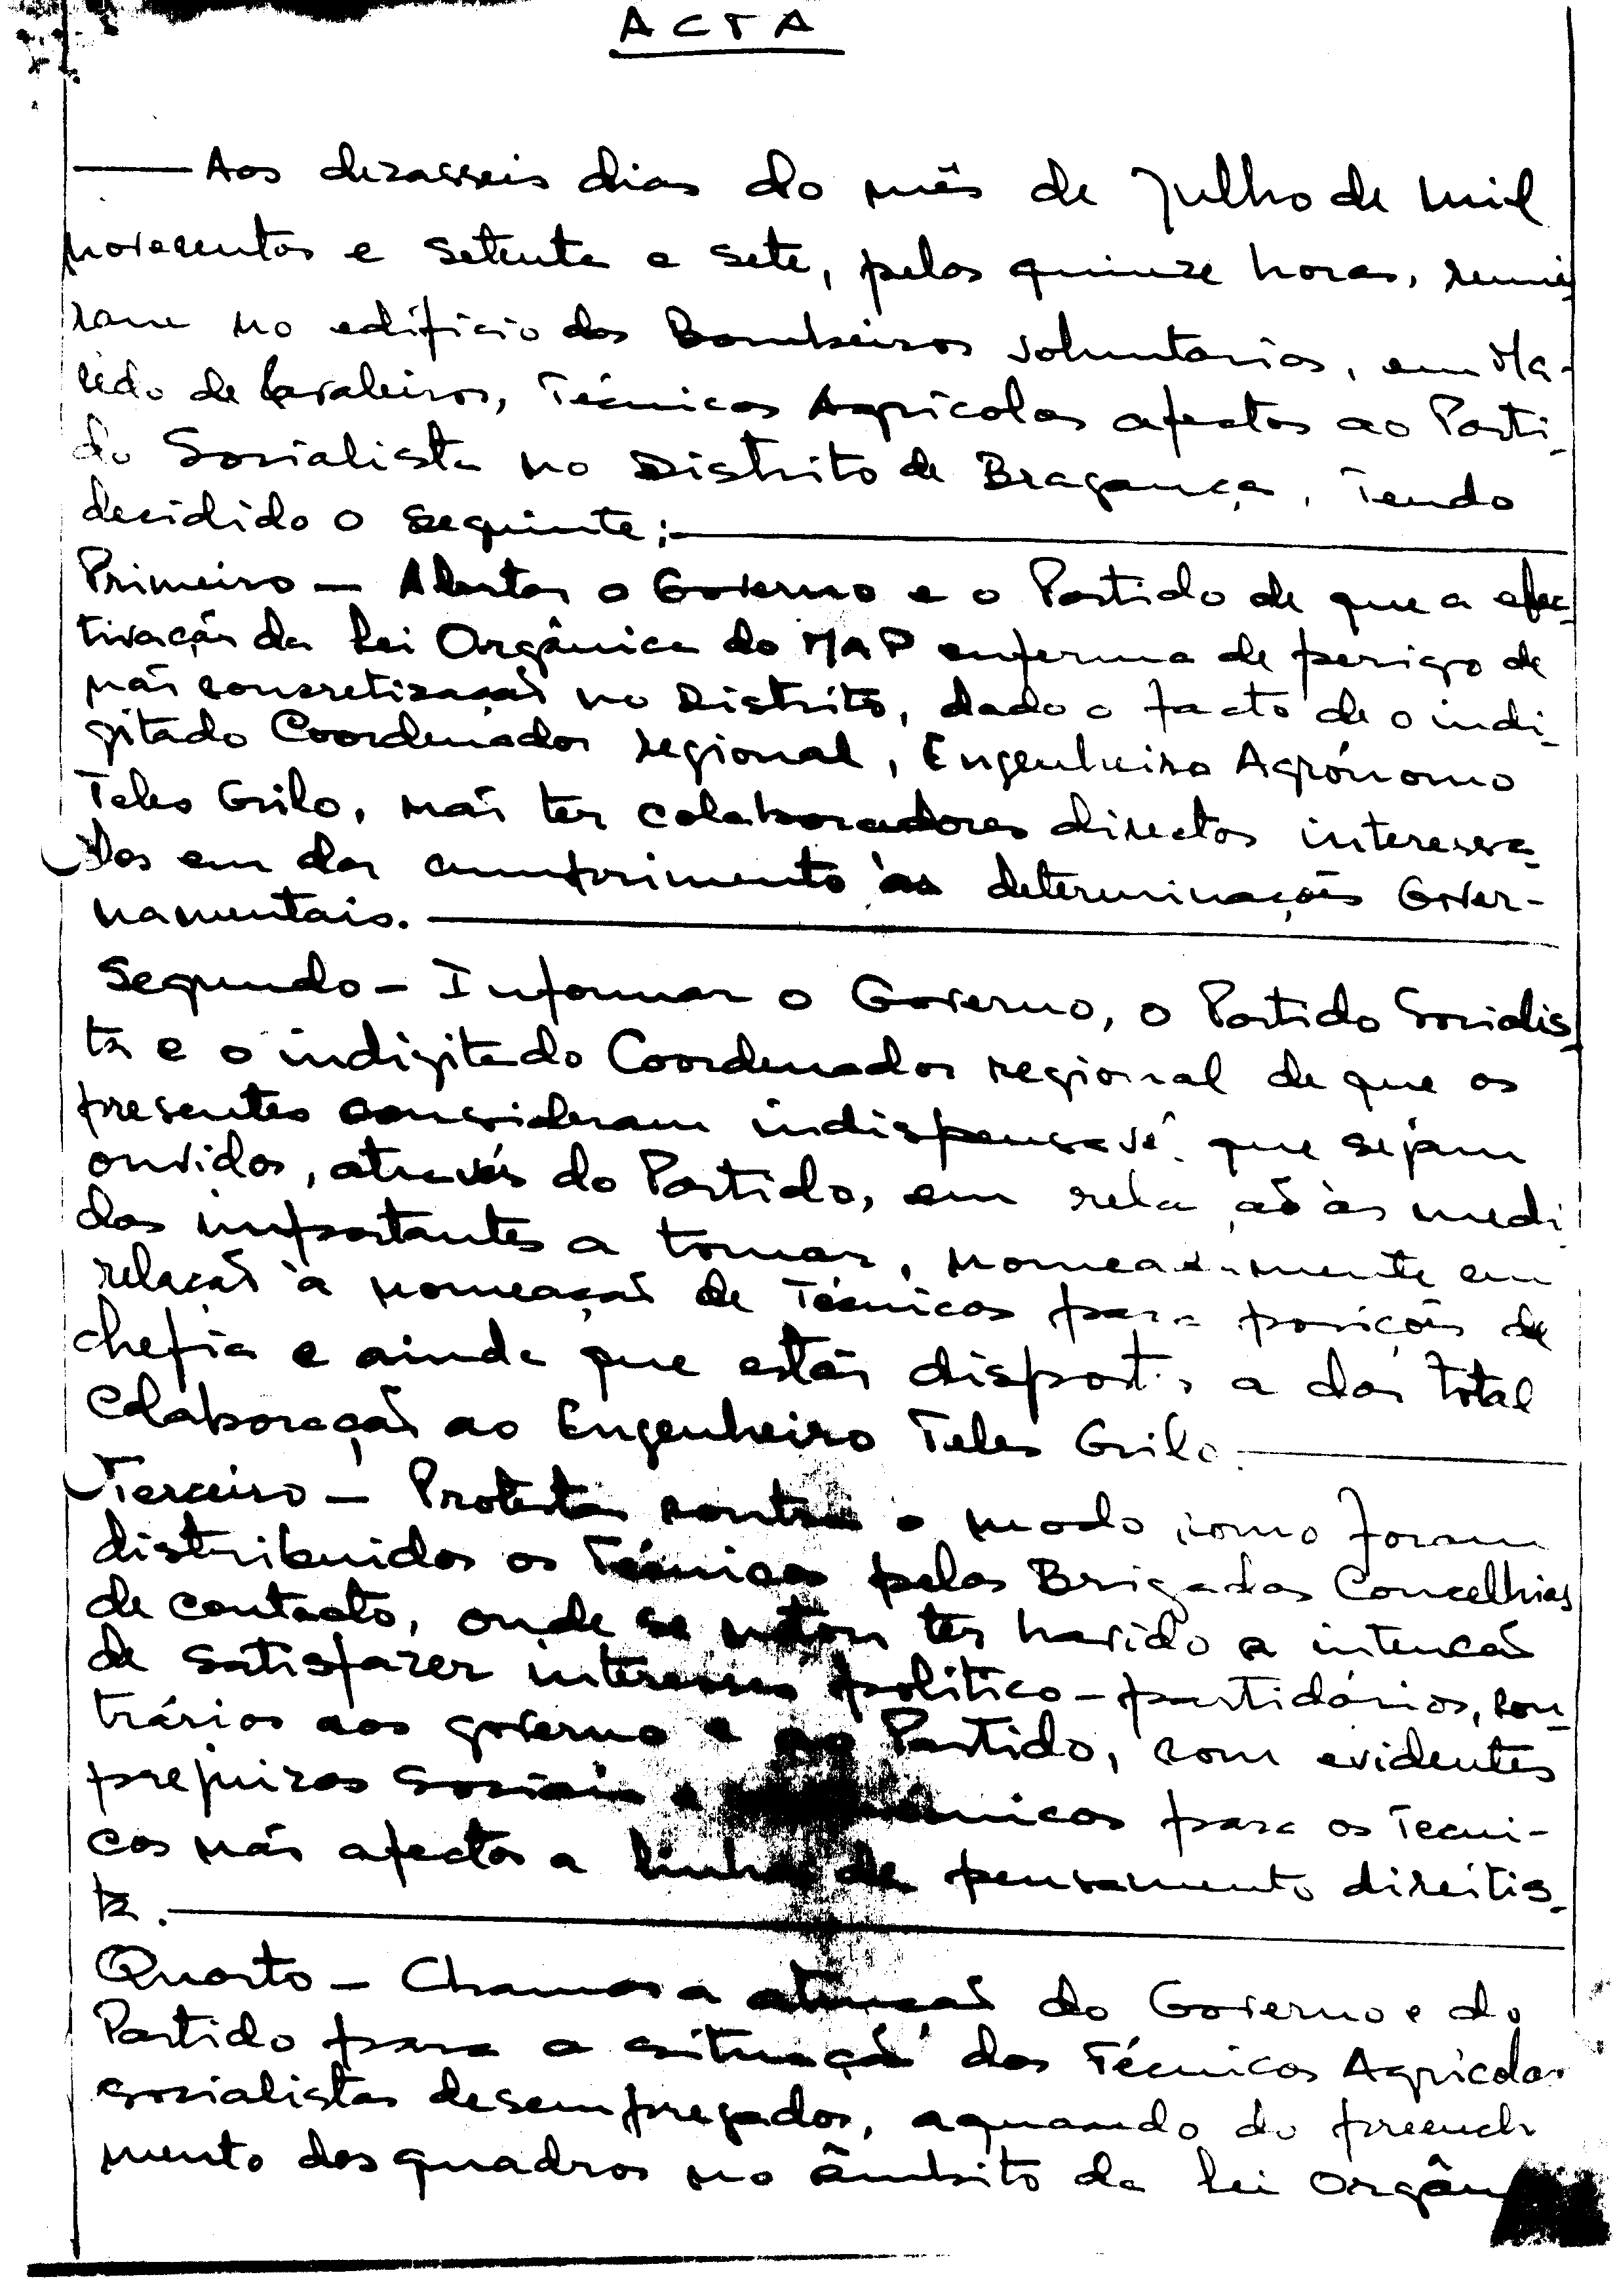 ACTA
Aos dezasseis dias do mês de Julho de mil
novecentos e setenta e sete, pelas quinze horas, reuni
ram no edifício dos Bombeiros Voluntarios, em Ma-
cedo de Cavaleiros, Técnicos Agrícolas afectos ao Parti-
do Socialista no Distrito de Bragança, Tendo
decidido o seguinte:
Primeiro — Alertar o Governo e o Partido de que a efec-
tivação da Lei Orgânica do MAP enferma de perigo de
não concretização no Distrito, dado o facto de o indi-
gitado Coordenador regional, Engenheiro Agrónomo
Teles Grilo, não ter colaboradores directos interessa-
dos em dar cumprimento às determinações Gover-
namentais.
Segundo — Informar o Governo, o Partido Socialis-
ta e o indigitado Coordenador regional de que os
presentes consideram indispensavel que sejam
ouvidos, através do Partido, em relação às medi
das importantes a tomar, nomeadamente em
relação à nomeação de Técnicos para posições de
chefia e ainda que estão dispostos a dar total
colaboração ao Engenheiro Teles Grilo.
Terceiro — Protestar contra o modo como foram
distribuidos os Técnicos pelas Brigadas Concelhias
de contacto, onde se notou ter havido a intenção
de satisfazer interesses político-partidários, con-
trários aos governo e ao Partido, com evidentes
prejuizos sociais e económicos para os Tecni-
cos não afectos a linhas de pensamento direitis-
ta.
Quarto — Chamar a atenção do Governo e do
Partido para a situação dos Técnicos Agrícolas
socialistas desempregados, aquando do preenchi
mento dos quadros no âmbito da Lei Orgân